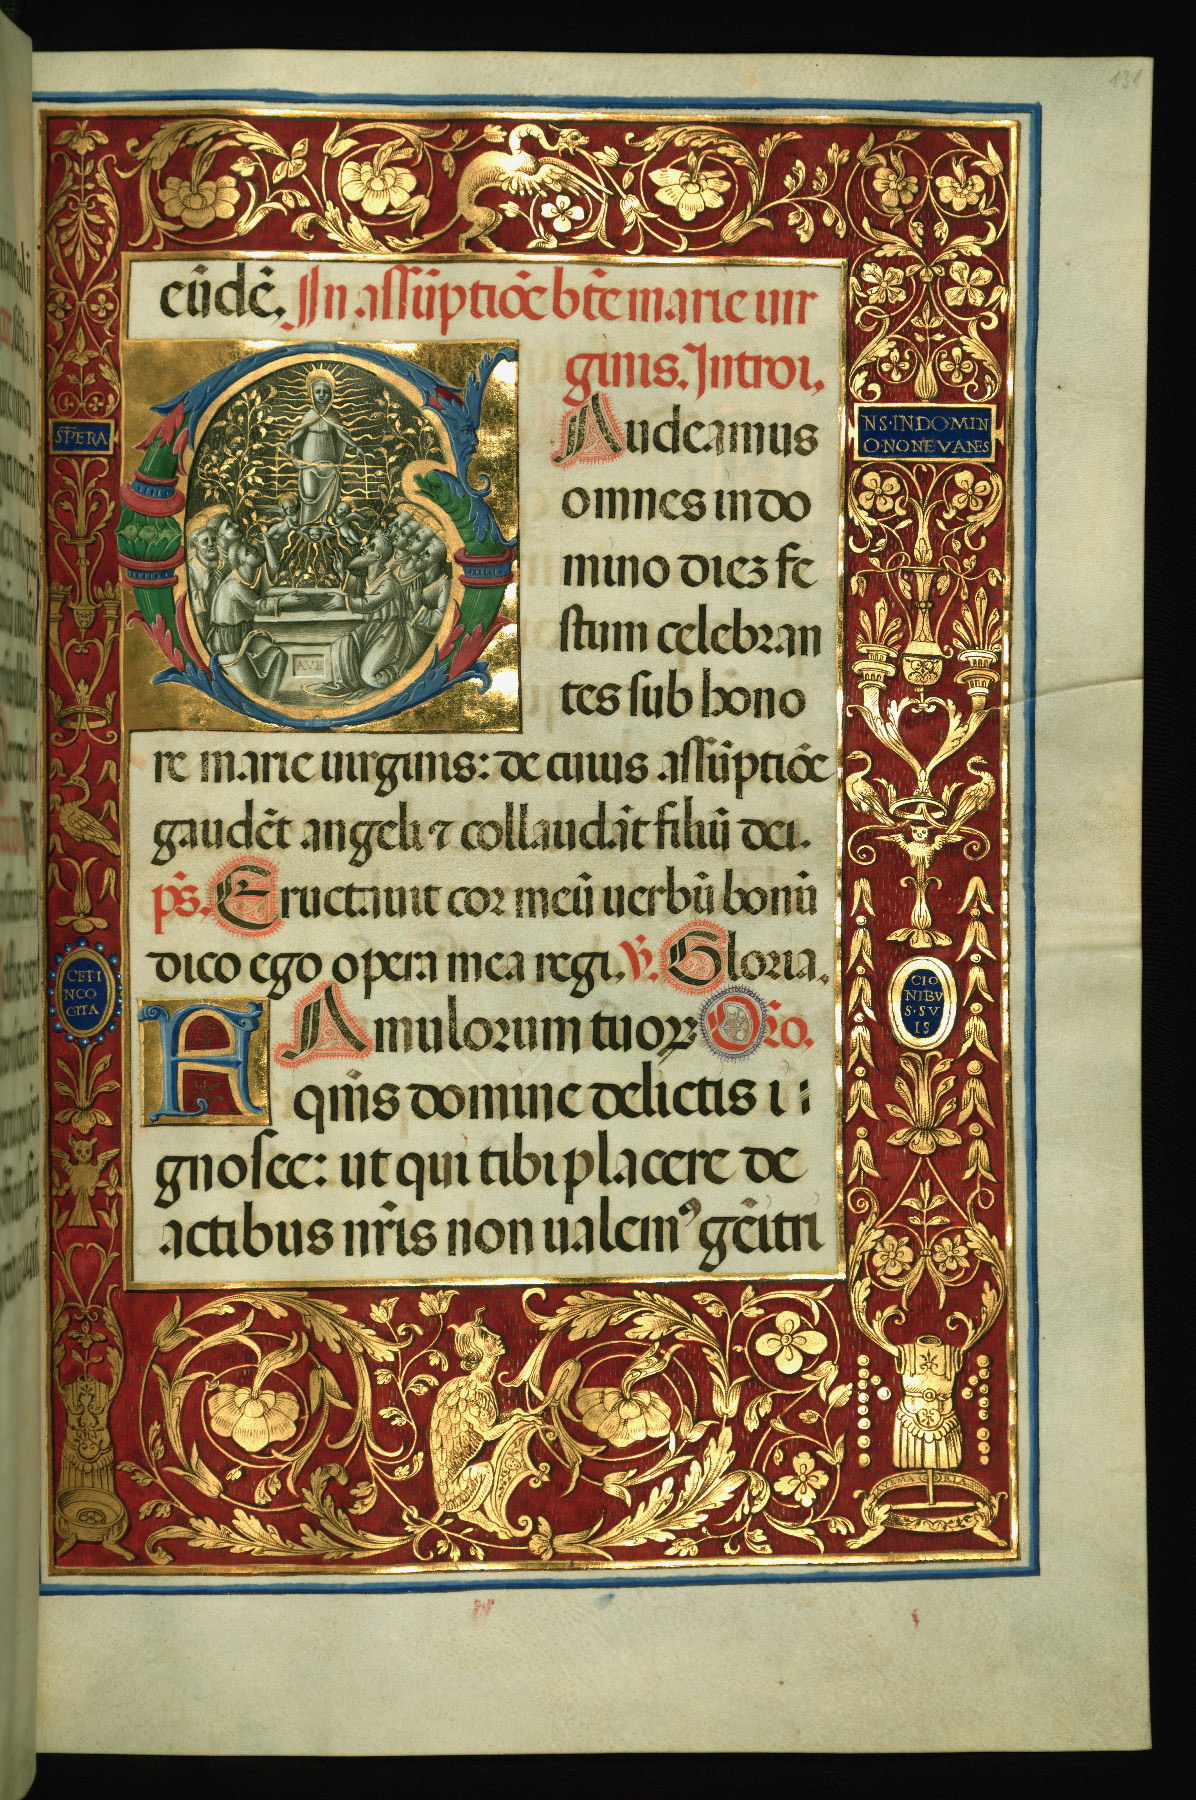 131
eu̅de̅. In assu̅ptio̅e bt̅e marie uir
ginis. Introi.
Gaudeamus
omnes in do
mino diez fe
stum celebran
tes sub hono
re marie uirginis: de cuius assu̅ptio̅e
gaude̅t angeli ⁊ collauda̅t filiu̅ dei.
ps̅. Eructauit cor meu̅ uerbu̅ bonu̅
dico ego opera mea regi. V̅. Gloria.
FAmulorum tuoꝝ Or̅o.
qm̅s domine delictis i:
gnosce: ut qui tibi placere de
actibus nr̅is non ualemꝰ ge̅itri
SPERA
NS·INDOMIN
O·NONEVANES
CETI
NCO
GITA
CIO
NIBV
S·SV
IS
AVE